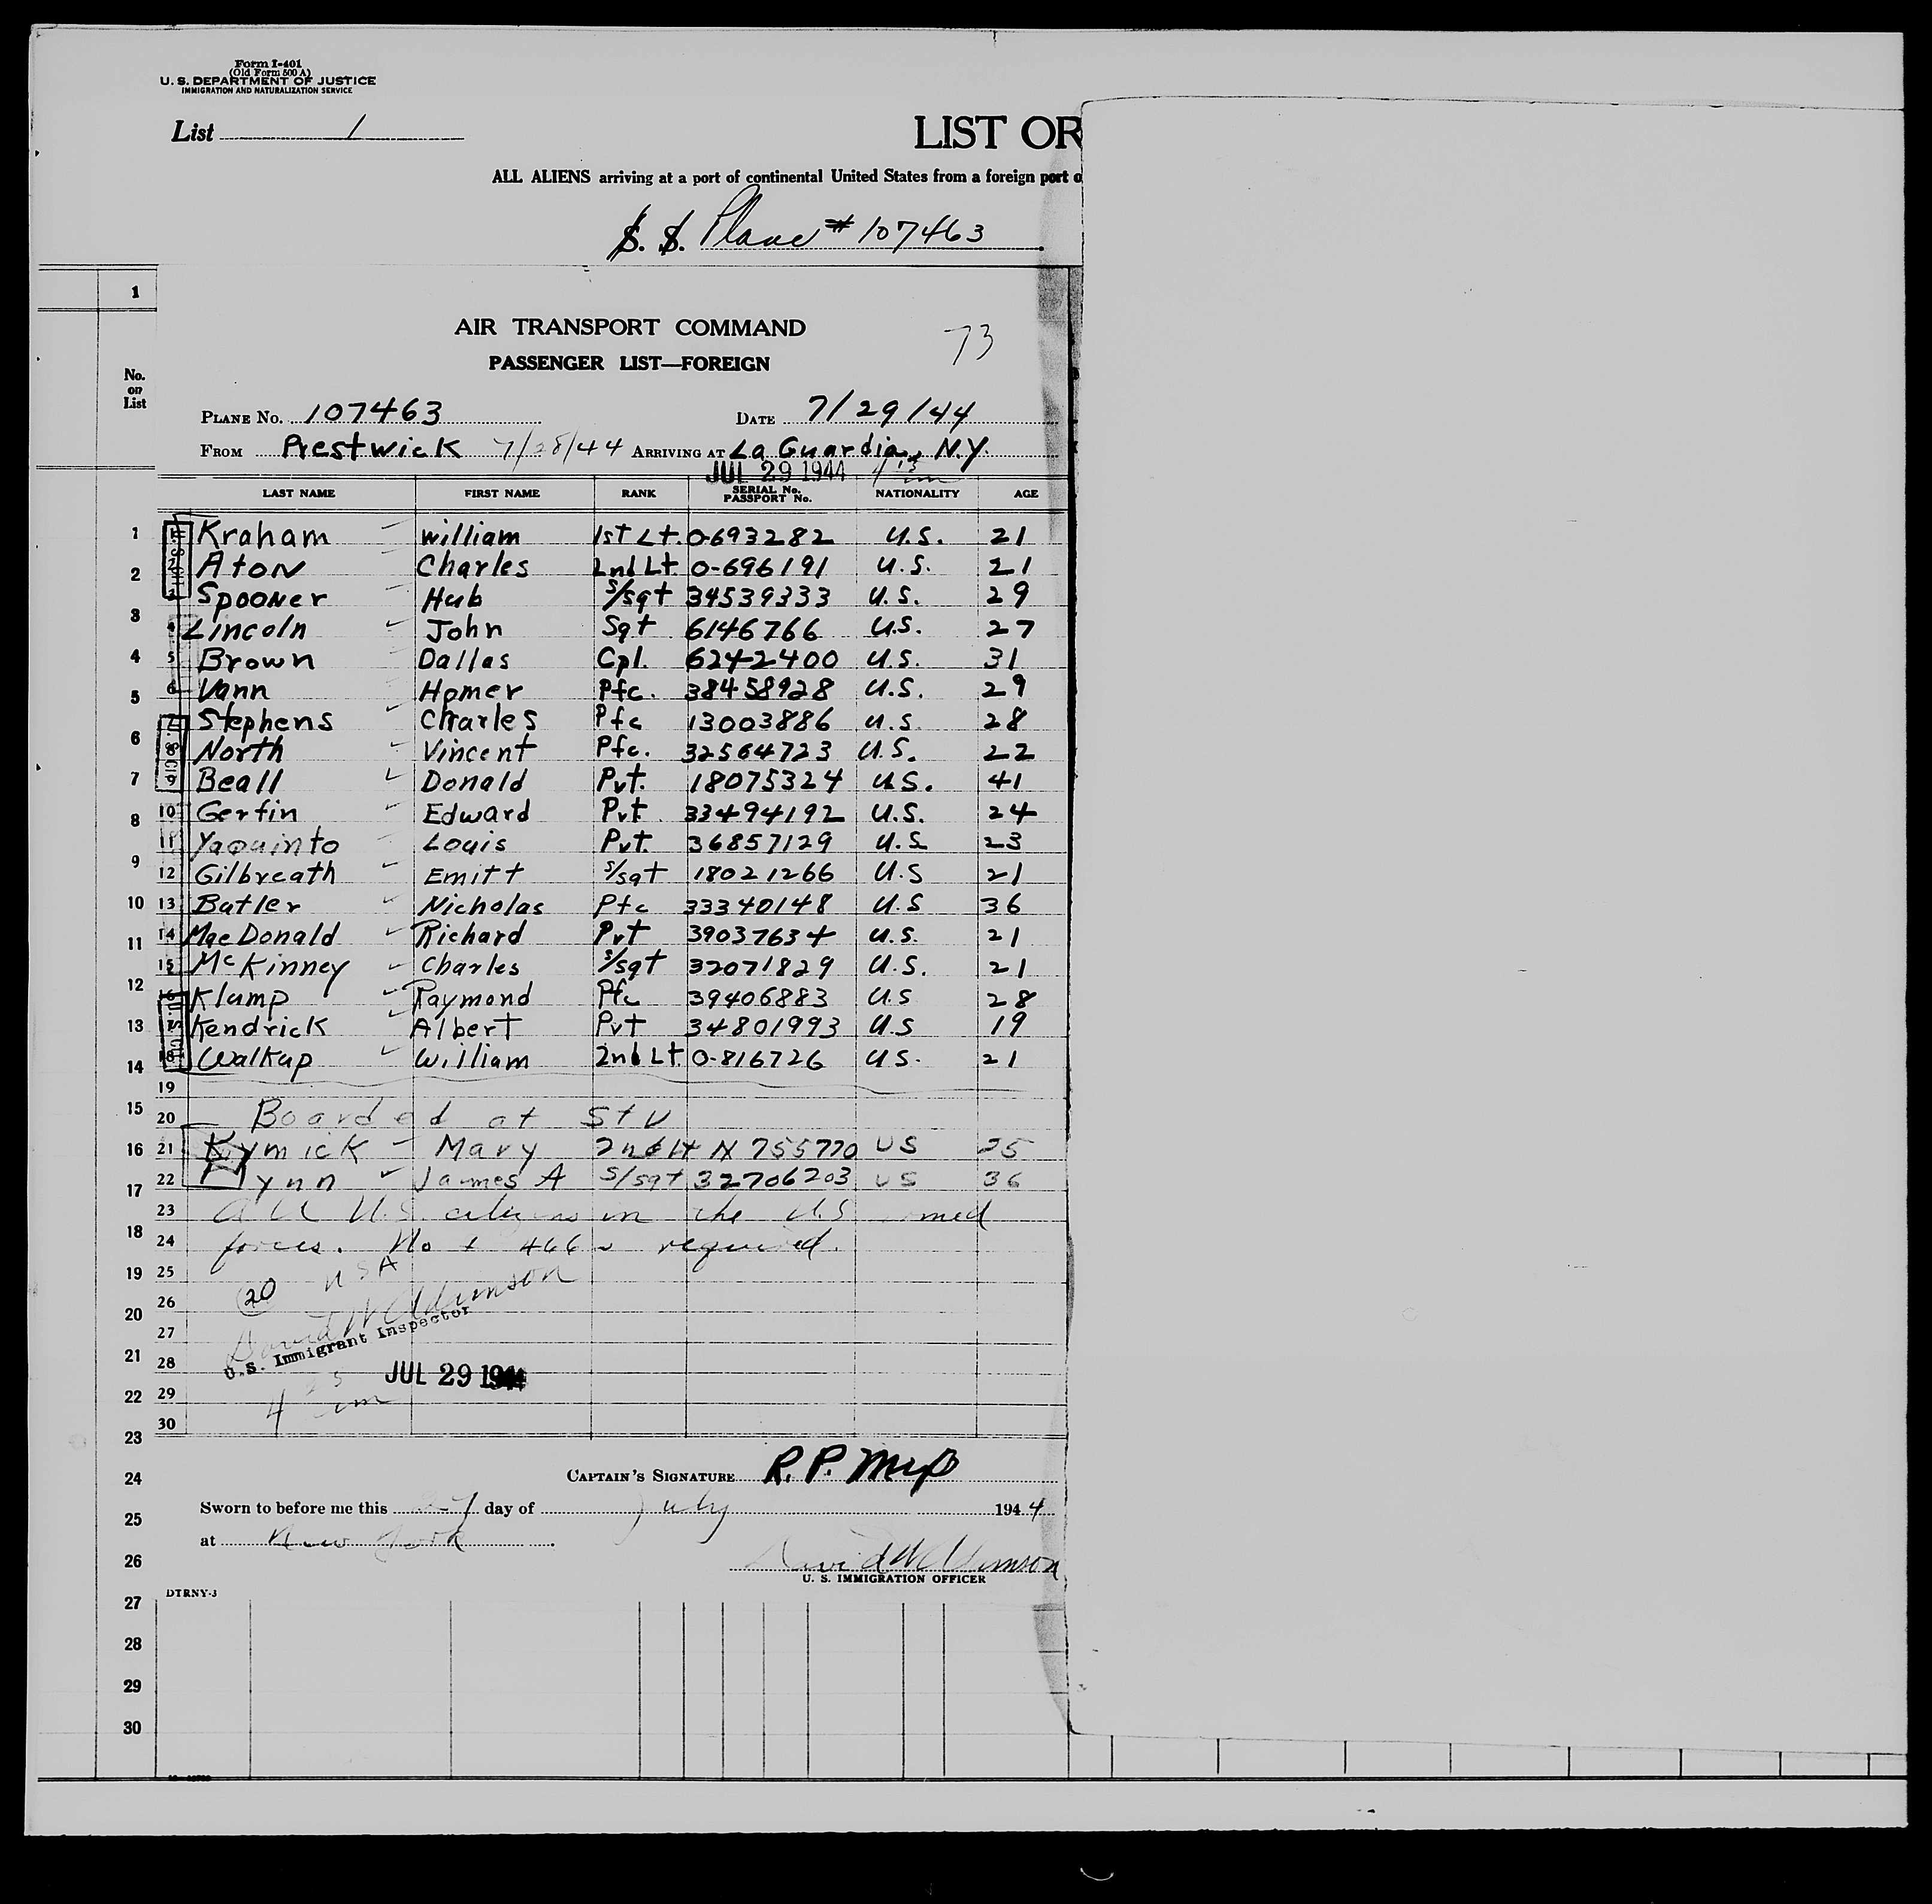 Form I-401
(Old Form 500 A)
U. S. DEPARTMENT OF JUSTICE
IMMIGRATION AND NATURALIZATION SERVICE
List 1
LIST OR
ALL ALIENS arriving at a port of continental United States from a foreign port o
S. S. Plane # 107463
1
AIR TRANSPORT COMMAND
73
PASSENGER LIST—FOREIGN
No. on List
PLANE No. 107463 DATE 7/29/44
FROM Prestwick 7/28/44 ARRIVING AT La Guardia, N.Y.
JUL 29 1944
LAST NAME FIRST NAME RANK SERIAL No. PASSPORT No. NATIONALITY AGE
1 Kraham William 1st Lt. 0-693282 U.S. 21
2 Aton Charles 2nd Lt. 0-696191 U.S. 21
3 Spooner Hub S/sgt 34539333 U.S. 29
4 Lincoln John Sgt 6146766 U.S. 27
5 Brown Dallas Cpl. 6242400 U.S. 31
6 Vann Homer Pfc. 38458928 U.S. 29
7 Stephens Charles Pfc 13003886 U.S. 28
8 North Vincent Pfc. 32564723 U.S. 22
9 Beall Donald Pvt. 18075324 U.S. 41
10 Gerfin Edward Pvt. 33494192 U.S. 24
11 Yaquinto Louis Pvt. 36857129 U.S. 23
12 Gilbreath Emitt S/sgt 18021266 U.S 21
13 Butler Nicholas Pfc 33340148 U.S 36
14 MacDonald Richard Pvt 39037634 U.S. 21
15 McKinney Charles S/sgt 32071829 U.S. 21
16 Klump Raymond Pfc 39406883 U.S 28
17 Kendrick Albert Pvt 34801993 U.S 19
18 Walkup William 2nd Lt. 0-816726 U.S. 21
19
20 Boarded at StV
21 Kymick Mary 2nd Lt N 755770 US 25
22 Lynn James A S/sgt 32706203 US 36
23 All U.S. citizens in the U.S armed
24 forces. No I 466 required.
25 USA
26 20
David W Adimson
27 U.S. Immigrant Inspector
28 JUL 29 1944
29
30
CAPTAIN'S SIGNATURE R. P.
Sworn to before me this 29 day of July 1944
at New York
David W Adimson
U. S. IMMIGRATION OFFICER
DTRNY-3
1
2
3
4
5
6
7
8
9
10
11
12
13
14
15
16
17
18
19
20
21
22
23
24
25
26
27
28
29
30